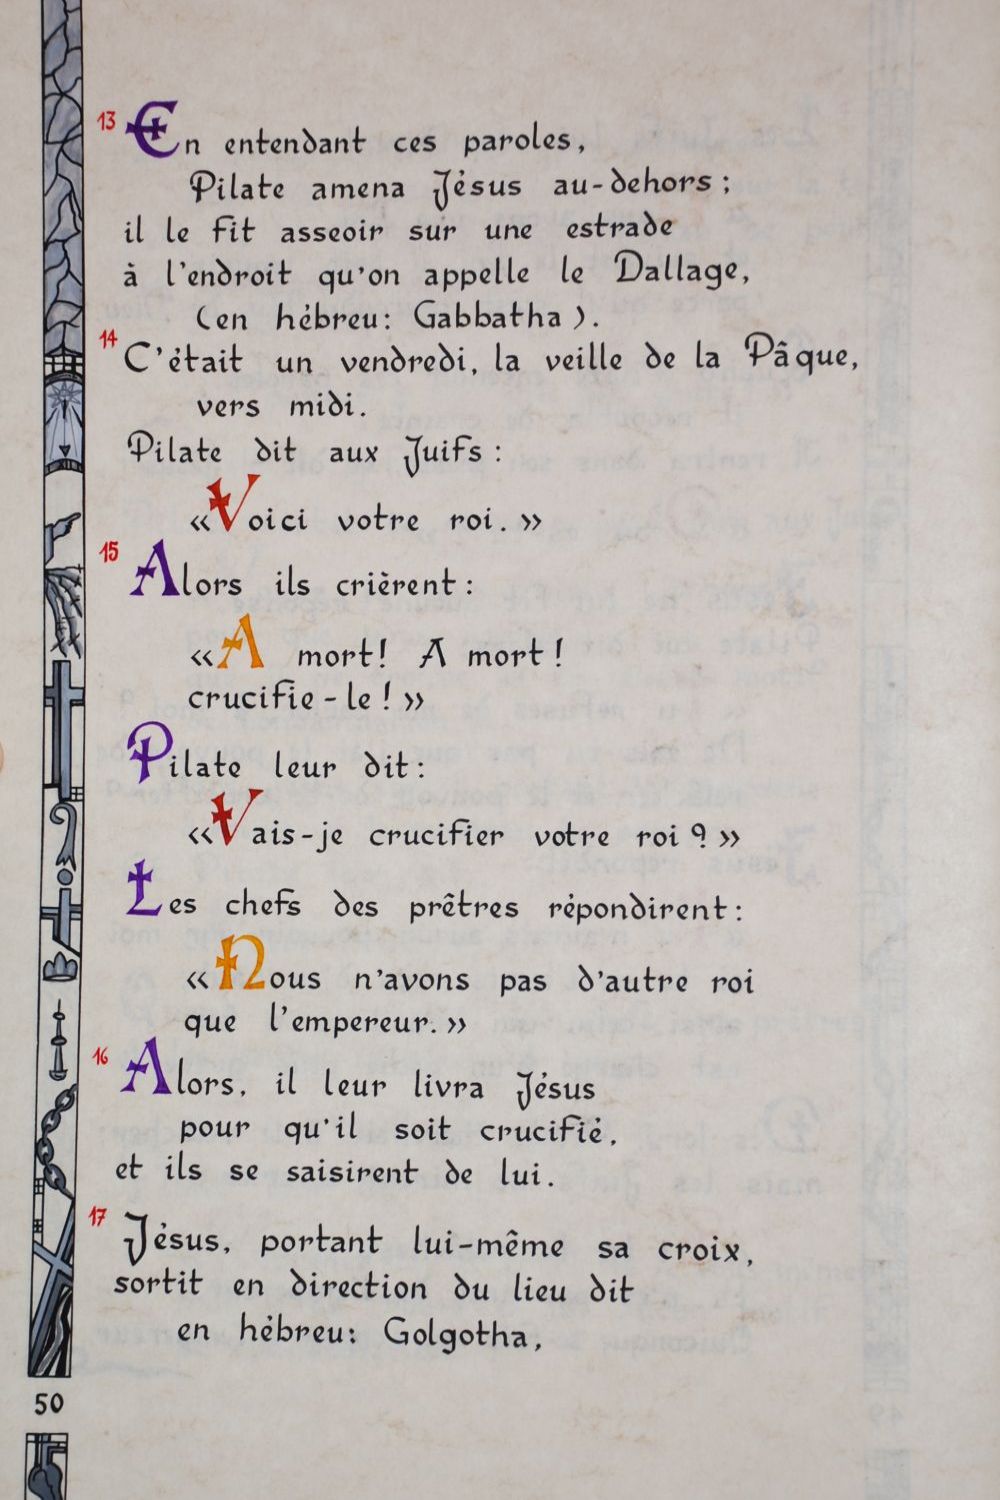 13 En entendant ces paroles,
Pilate amena Jésus au-dehors ;
il le fit asseoir sur une estrade
à l'endroit qu'on appelle le Dallage,
(en hébreu: Gabbatha ).
14 C'était un vendredi, la veille de la Pâque,
vers midi.
Pilate dit aux Juifs :
«Voici votre roi. »
15 Alors ils crièrent :
«A mort! A mort !
crucifie-le ! »
Pilate leur dit :
«Vais-je crucifier votre roi ? »
Les chefs des prêtres répondirent :
«Nous n'avons pas d'autre roi
que l'empereur. »
16 Alors, il leur livra Jésus
pour qu'il soit crucifié,
et ils se saisirent de lui.
17 Jésus, portant lui-même sa croix,
sortit en direction du lieu dit
en hébreu: Golgotha,
50